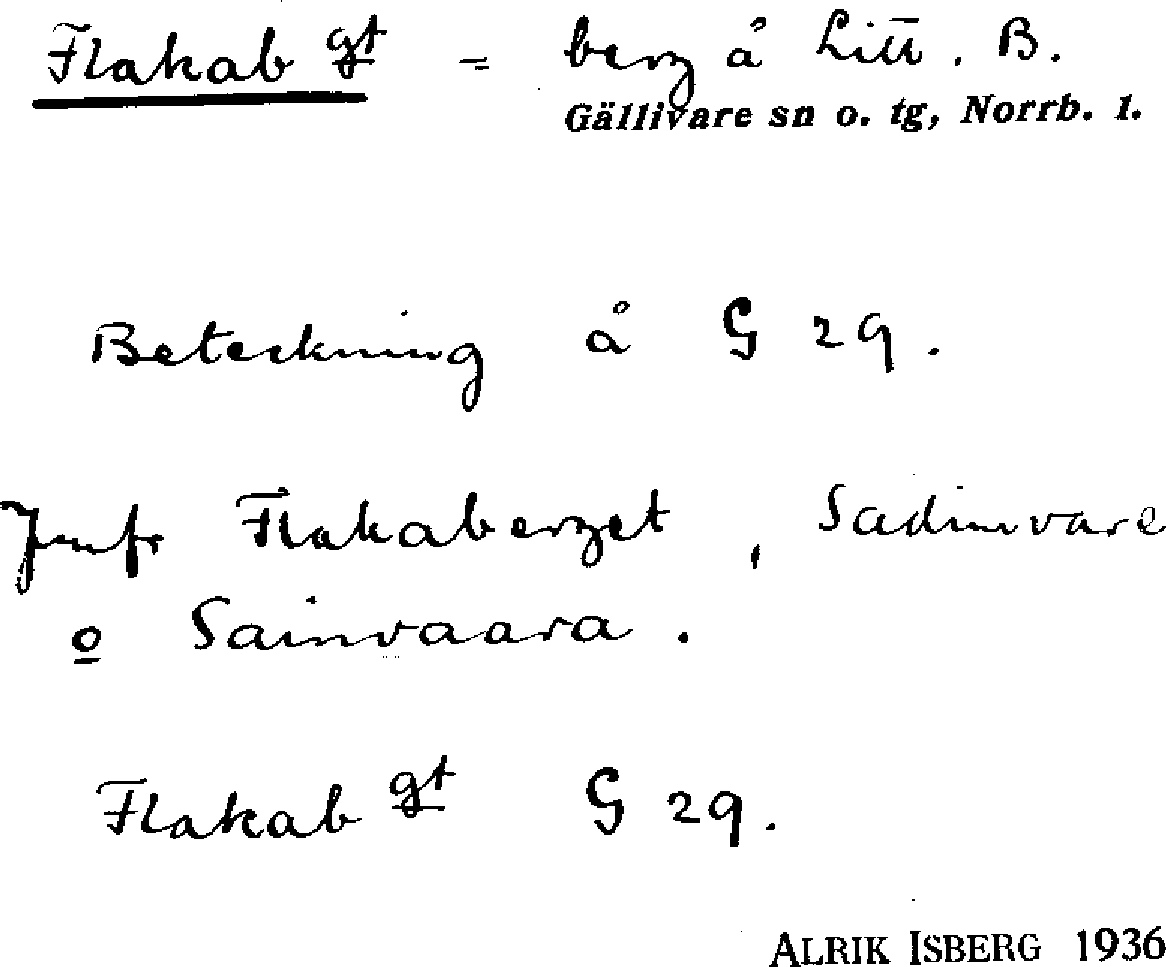 Flakab gt = berg å Litt. B.
Gällivare sn o. tg, Norrb. l.
Beteckning å G 29.
Jmfr Flakaberget, Sadinvare
o Sainvaara.
Flakab gt G 29.
ALRIK ISBERG 1936